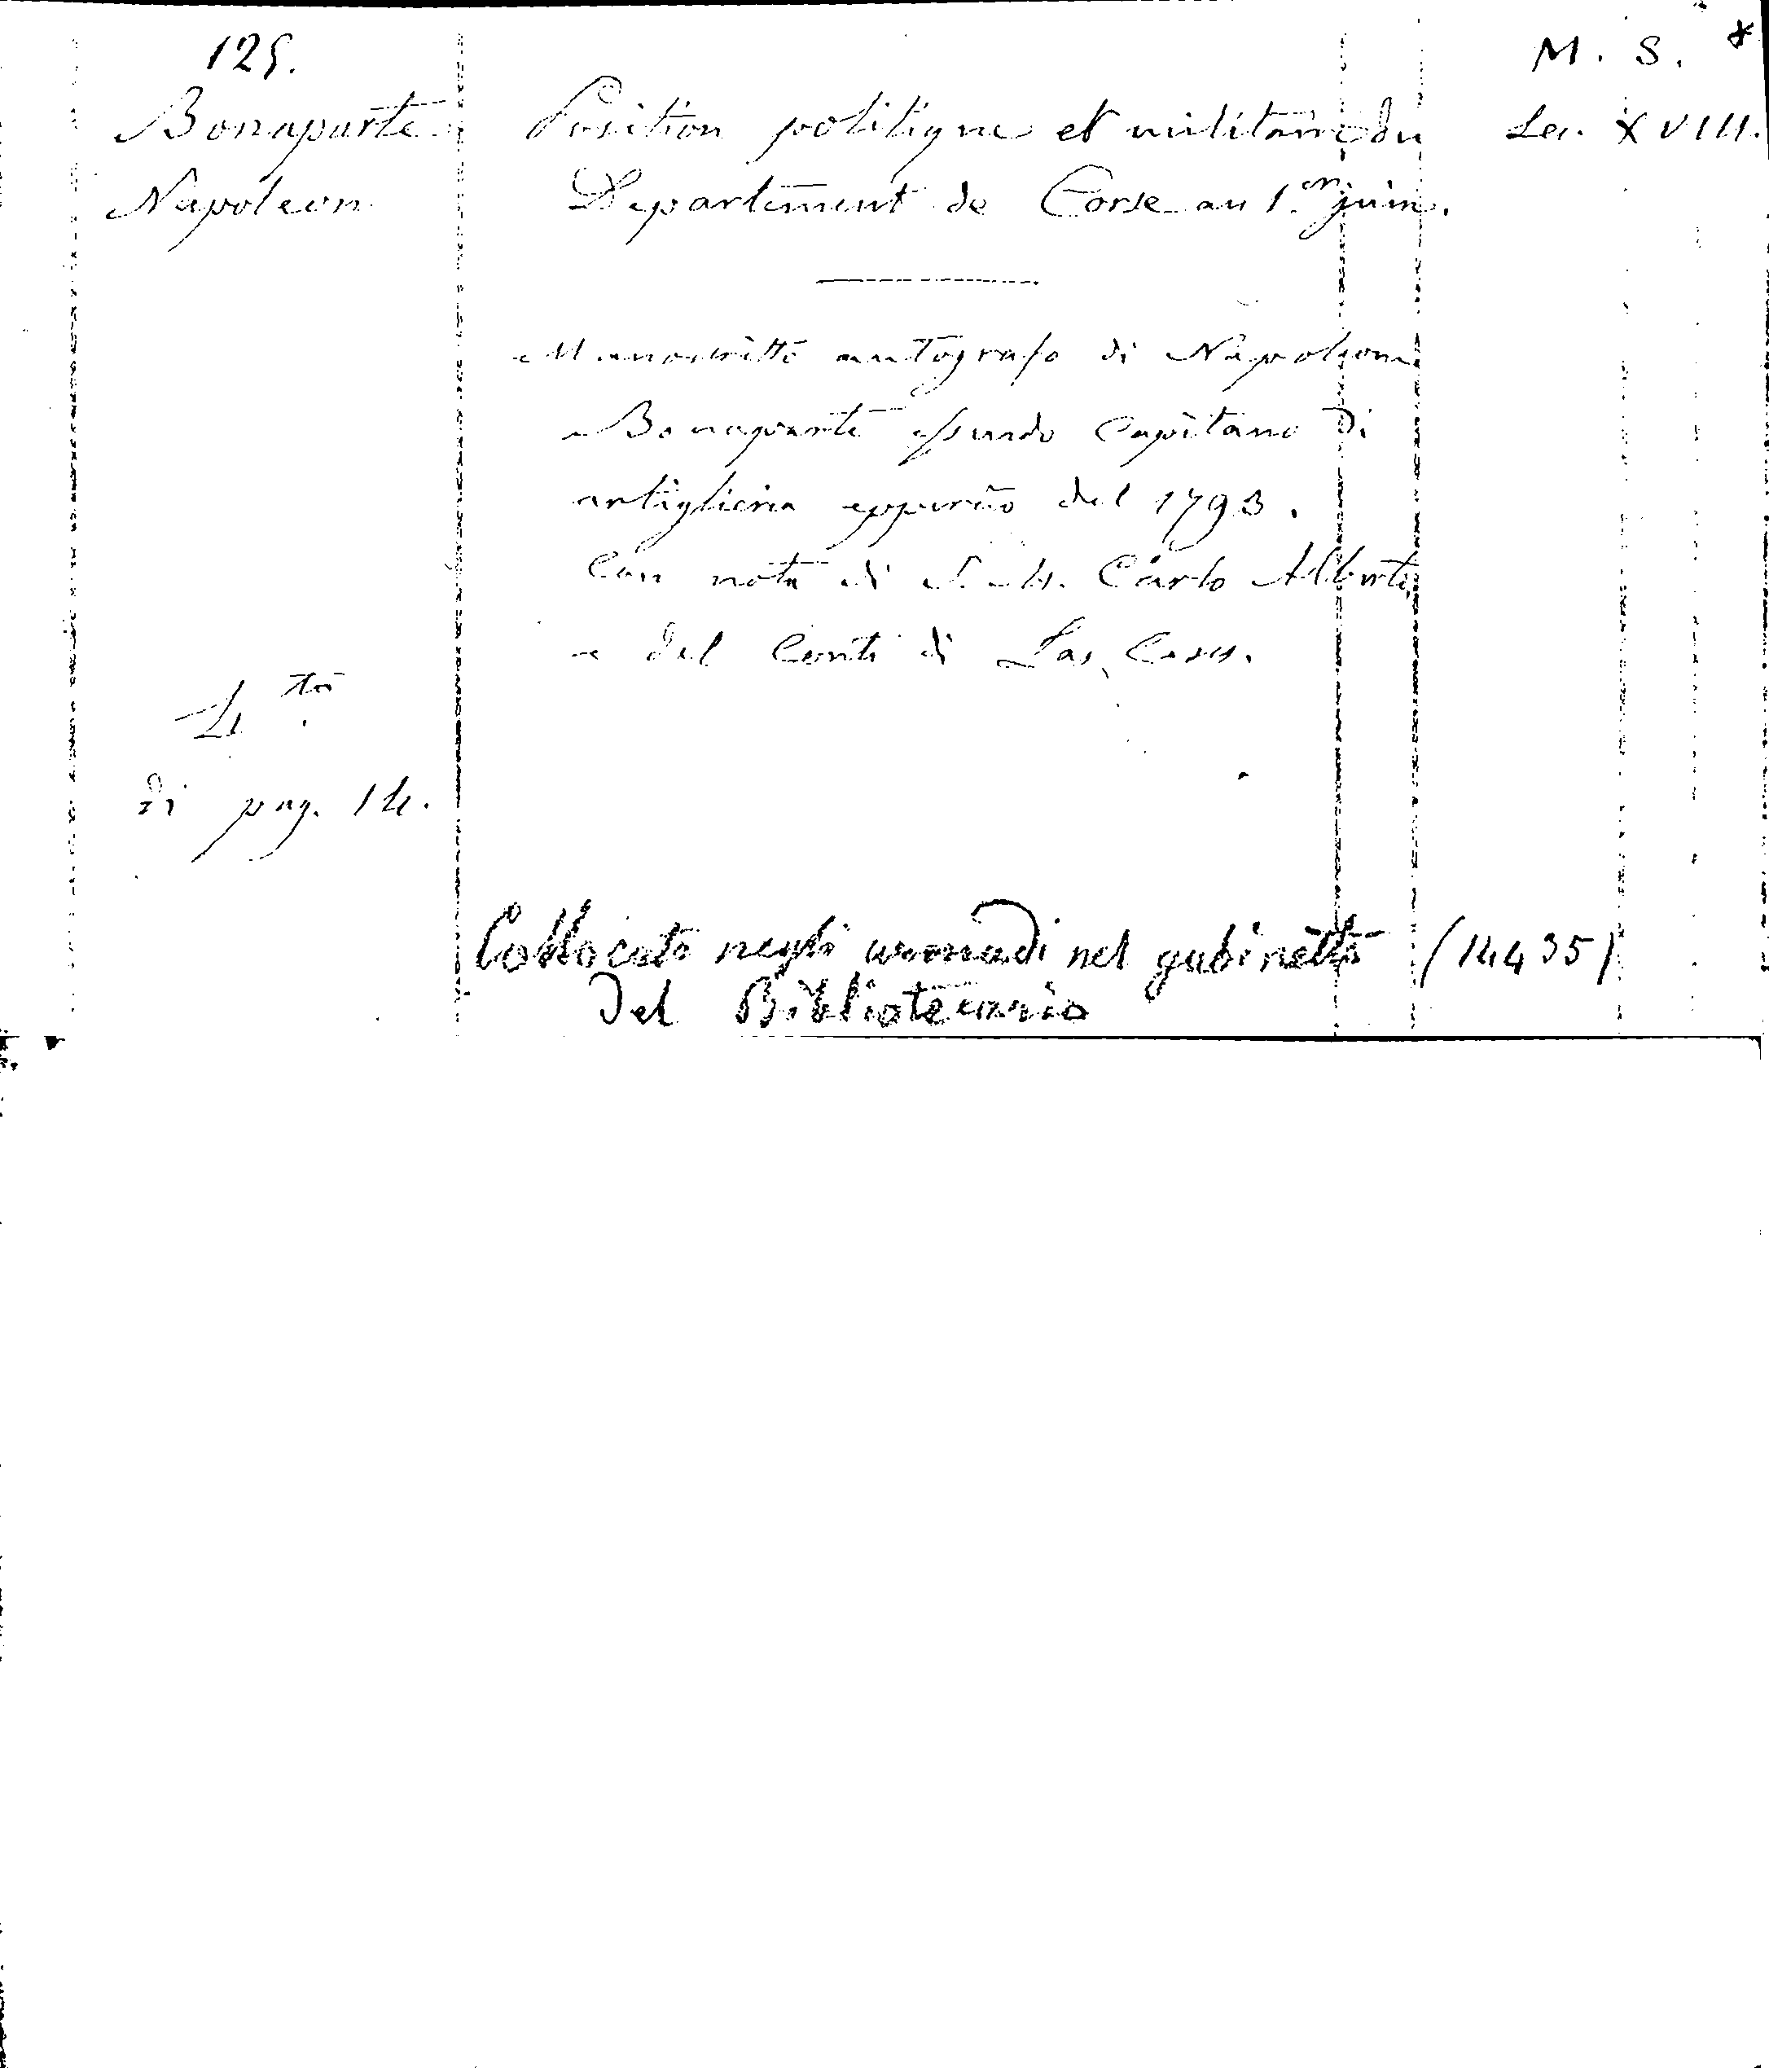 125.
M. S. *
Bonaparte
Napoleon
Position politique et militaire du
Departement de Corse au 1.er juin.
Sec. XVIII.
Manoscritto autografo di Napoleone
Bonaparte essendo Capitano di
artiglieria eppercio del 1793.
Con nota di S. M. Carlo Alberto,
e del Conte di Las Cases.
4.to
di pag. 14.
Collocato negli armadi nel gabinetto
del Bibliotecario
(14435)